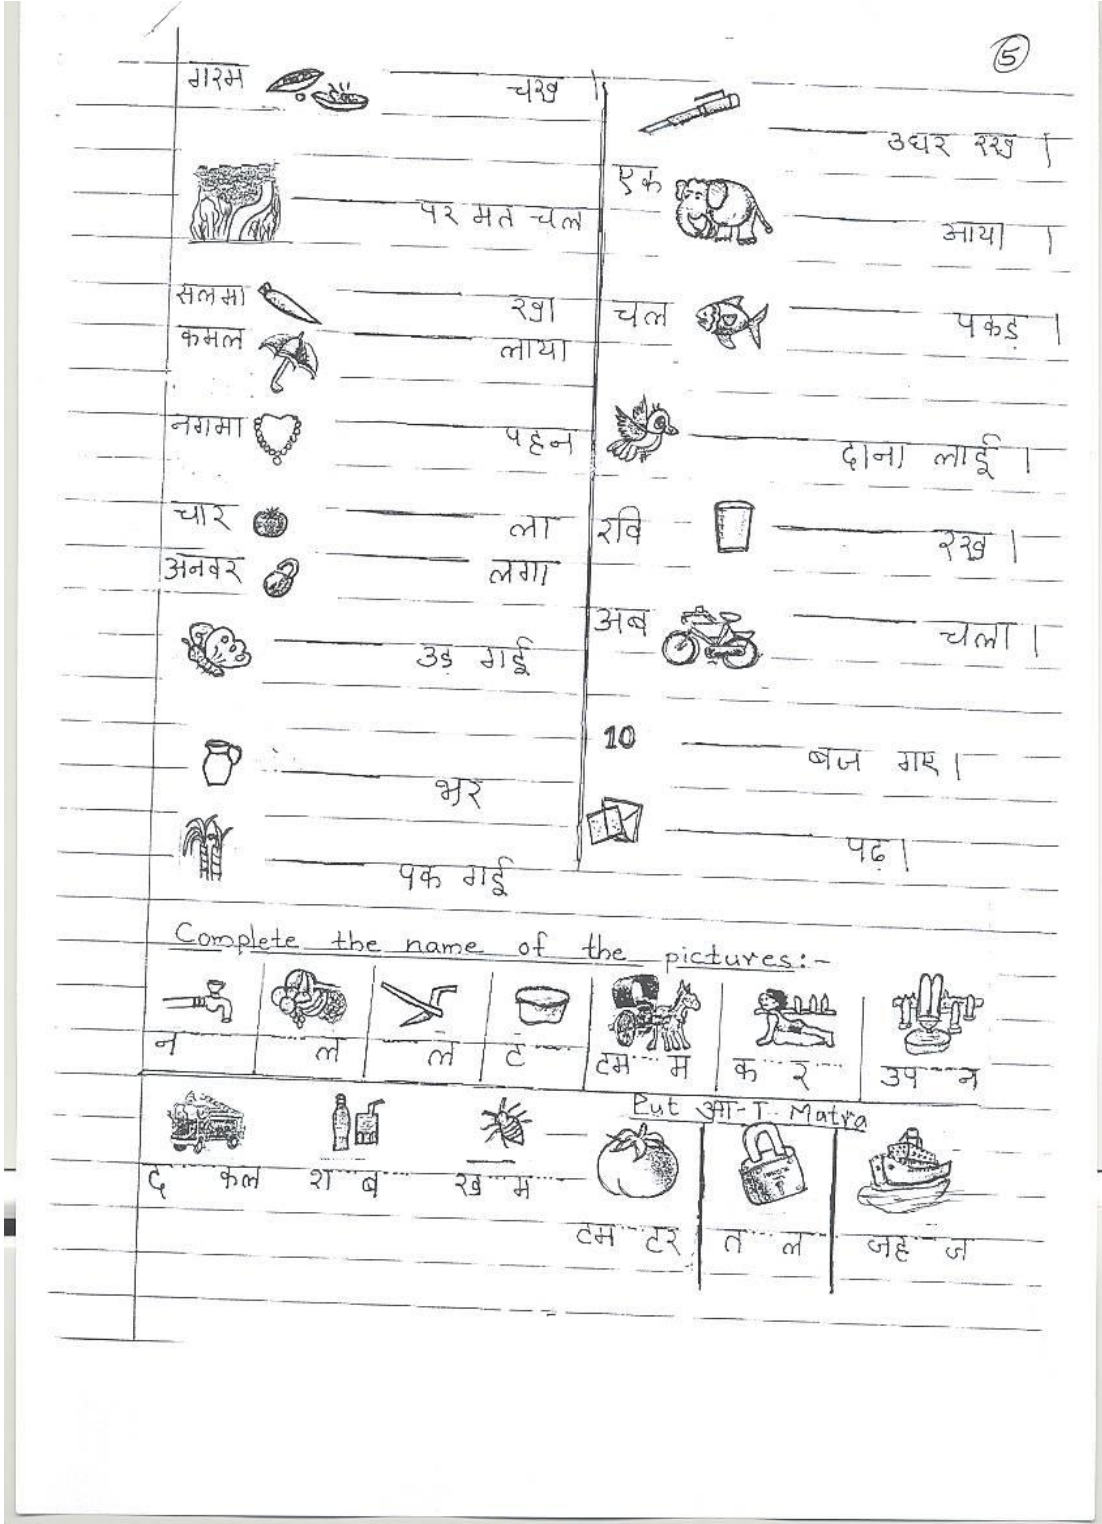 5
गरम ________ चख
________ पर मत चल
सलमा ________ खा
कमल ________ लाया
नगमा ________ पहन
चार ________ ला
अनवर ________ लगा
________ उड़ गई
________ भर
________ पक गई
________ उधर रख ।
एक ________ आया ।
चल ________ पकड़ ।
________ दाना लाई ।
रवि ________ रख ।
अब ________ चला ।
10 ________ बज गए ।
________ पढ़ ।
Complete the name of the pictures:-
न---- ----ल ----ल ट---- टम---म क---र--- उप---न
द----कल श---ब ख---म
Put आ-ा Matra
टम---टर त---ल जह---ज